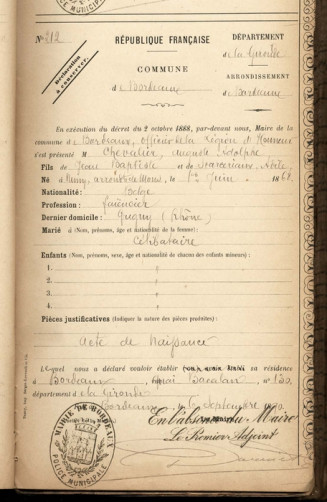 POLICE MUNICIPALE
N° 212
Déclaration à conserver.
RÉPUBLIQUE FRANÇAISE
COMMUNE
de Bordeaux
DÉPARTEMENT
de la Gironde
ARRONDISSEMENT
de Bordeaux
En exécution du décret du 2 octobre 1888, par-devant nous, Maire de la
commune de Bordeaux, officier de la Légion d'Honneur
s'est présenté M Chevalier, Auguste Adolphe
Fils de Jean Baptiste et de
Né à le 1er Juin 186
Nationalité: Belge
Profession: faïencier
Dernier domicile: (Rhône)
Marié à (Nom, prénoms, âge et nationalité de la femme):
Célibataire
Enfants (Nom, prénoms, sexe, âge et nationalité de chacun des enfants mineurs):
1.
2.
3.
4.
Pièces justificatives (Indiquez la nature des pièces produites):
Acte de Naissance
Lequel nous a déclaré vouloir établir sa résidence
à Bordeaux quai Bacalan, n° 130
département de la Gironde
Bordeaux, le septembre
En l'absence du Maire
Le Premier Adjoint
MAIRIE DE BORDEAUX
POLICE MUNICIPALE